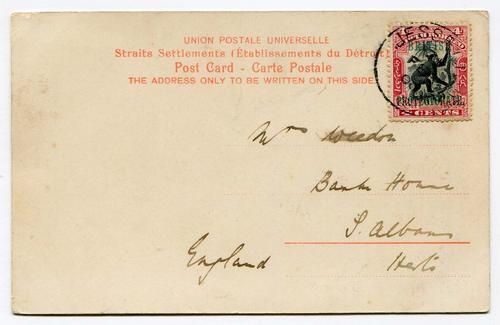 UNION POSTALE UNIVERSELLE
Straits Settlements (Établissements du Détroit)
Post Card - Carte Postale
THE ADDRESS ONLY TO BE WRITTEN ON THIS SIDE.
JESSE
BRITISH
PROTECTORATE.
CENTS
Mrs Weedon
Bank House
S. Albans
England
Herts